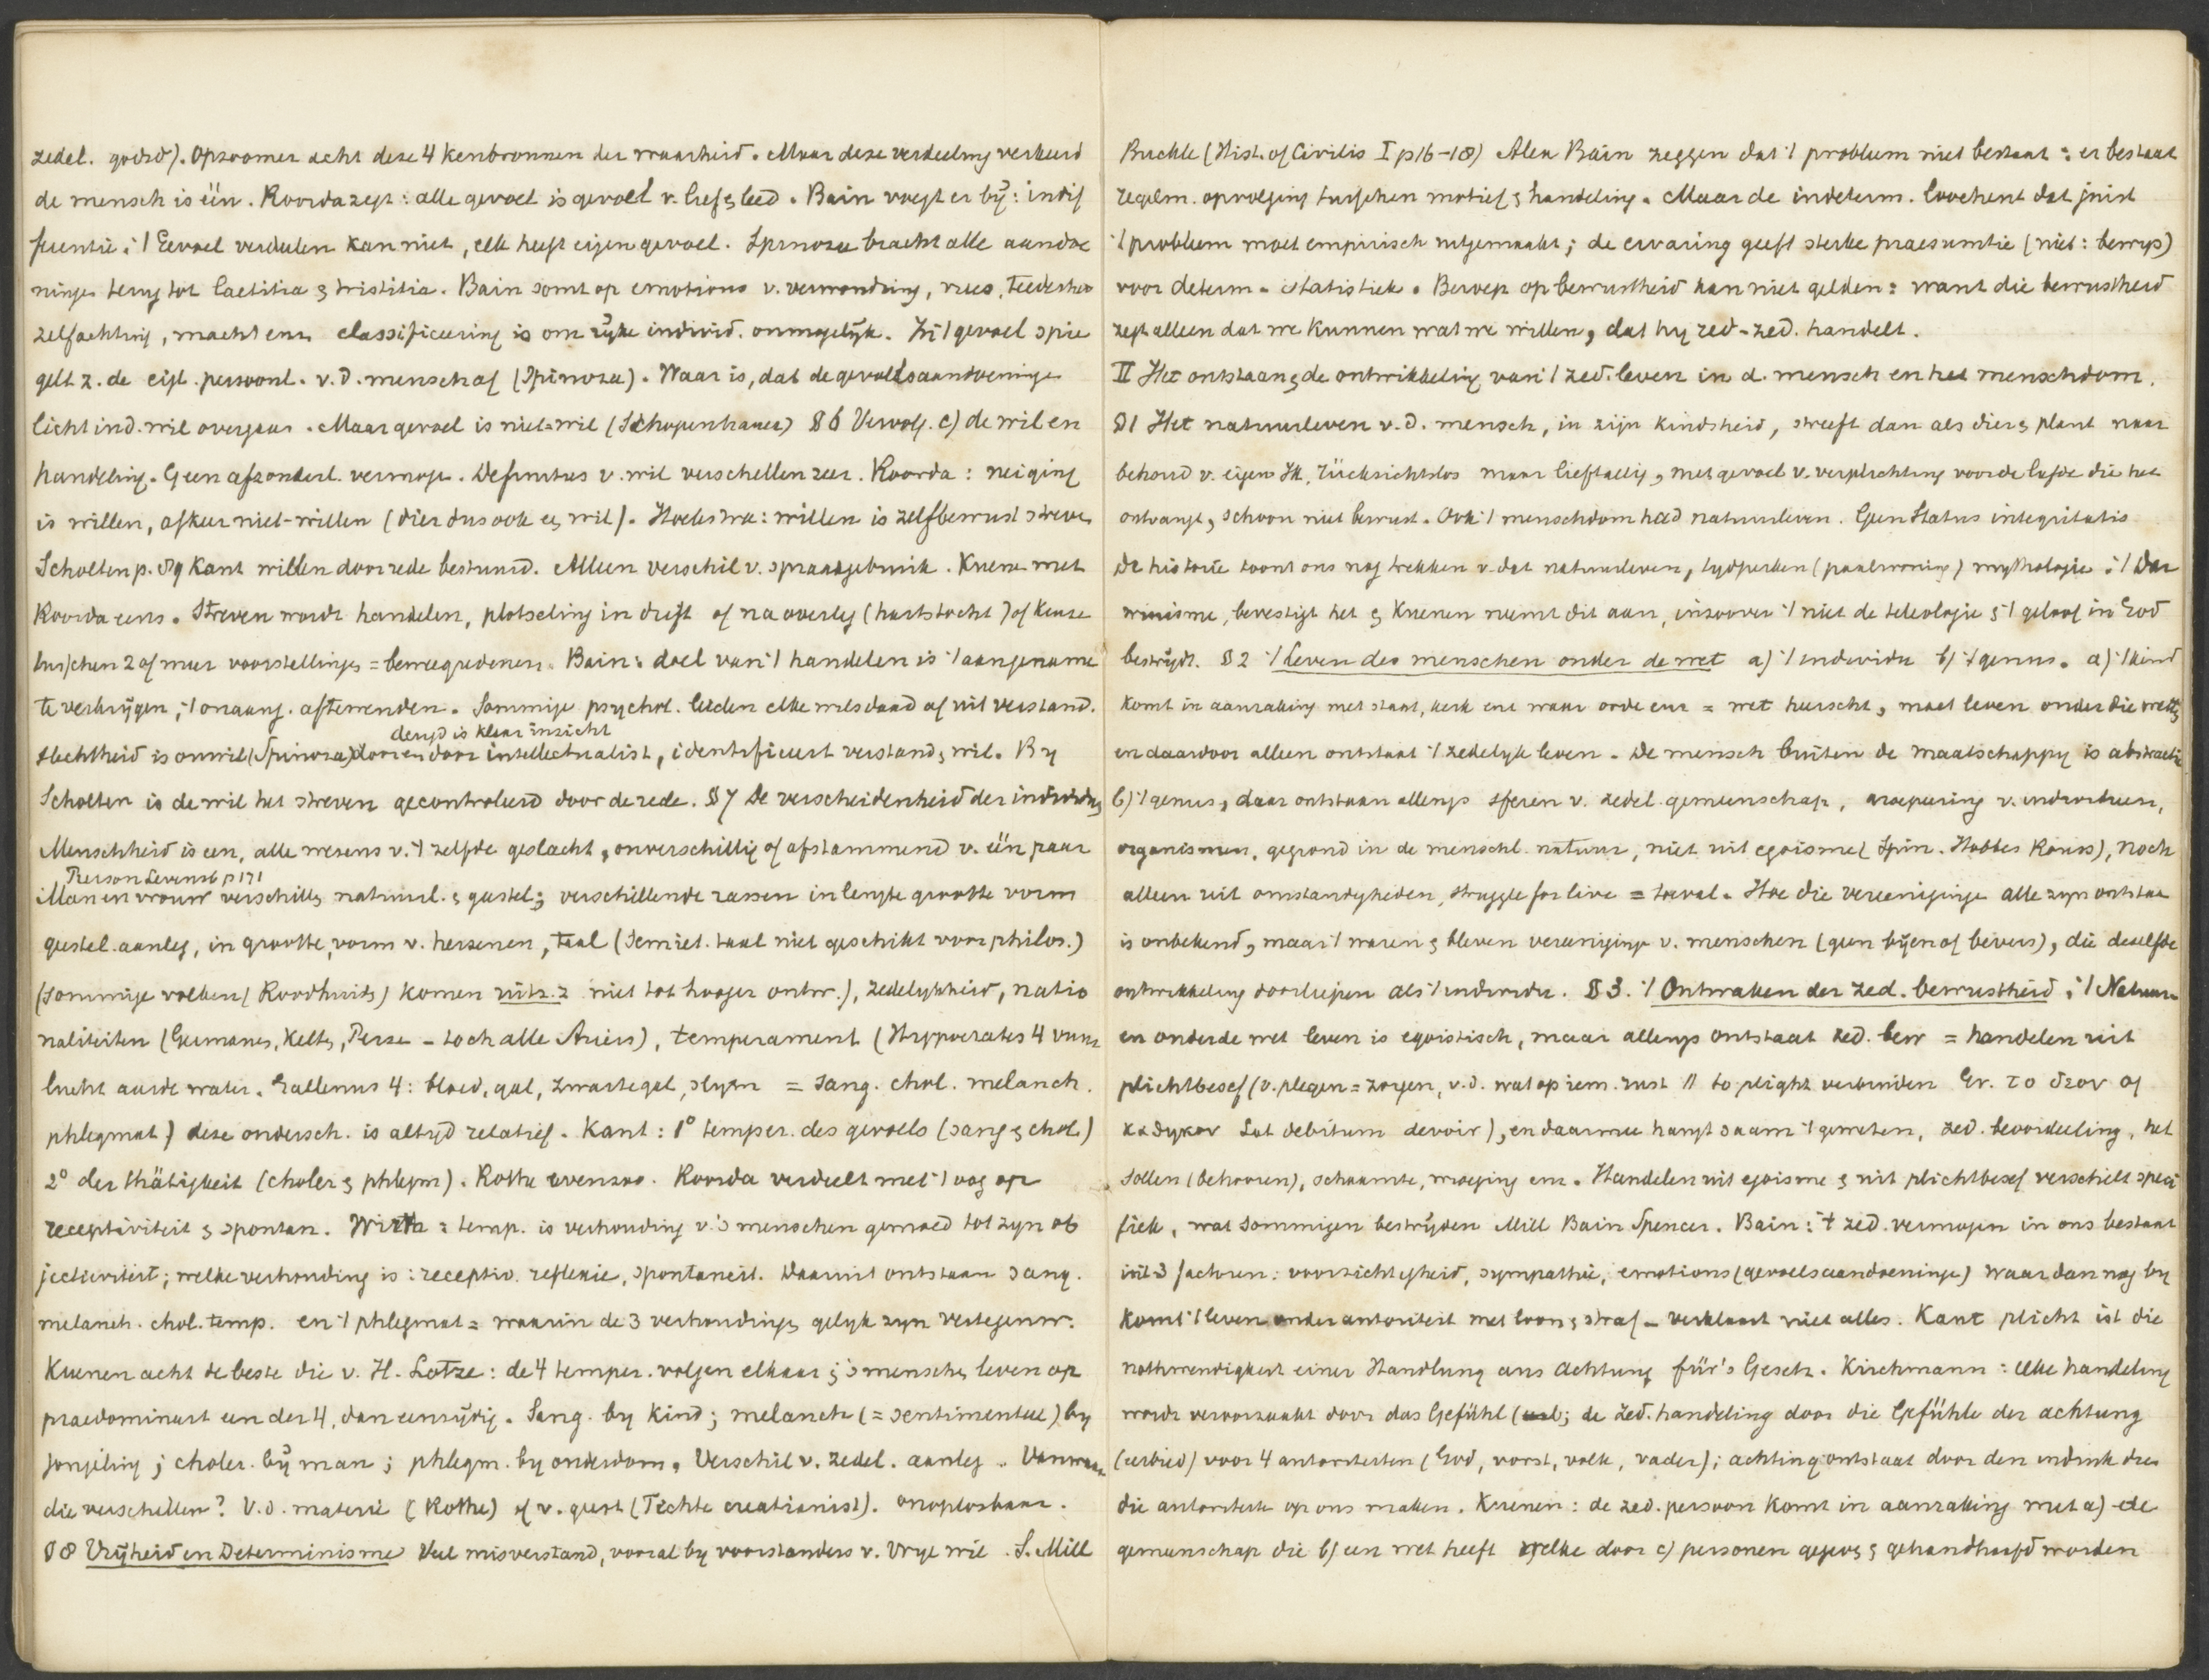 zedel. godsd). Opzoomer acht deze 4 kenbronnen der waarheid. Maar deze verdeeling verkeerd
de mensch is één. Roorda zegt: alle gevoel is gevoel v. lief & leed. Bain voegt er bÿ: indif
ferentie; 't Gevoel verdeelen kan niet, elk heeft eigen gevoel. Spinoza bracht alle aandoe
ningen terug tot laetitia & tristitia. Bain somt op emotions v. verwondring, vrees, teederheid
zelfachting, macht enz. classificeering is om rÿke individ. onmogelÿk. In 't gevoel spie
gelt z. de eigl. persoonl. v. d. mensch af (Spinoza). Waar is, dat de gevoelsaandoeningen
licht ind. wil overgaan. Maar gevoel is niet = wil (Schopenhauer) §6 Vervolg. c) de wil en
handeling. Geen afzonderl. vermogen. Definities v. wil verschillen zeer. Roorda: neiging
is willen, afkeer niet-willen (dier dus ook een wil). Hoekstra: willen is zelfbewust streven
Scholten p. 89 Kant willen door rede bestuurd. Alleen verschil v. spraakgebruik. Kuenen met
Roorda eens. Streven wordt handelen, plotseling in drift of na overleg (hartstocht) of keuze
tusschen 2 of meer voorstellingen = beweegredenen. Bain: doel van 't handelen is 't aangename
te verkrÿgen, 't onaang. aftewenden. Sommige psychol. leiden elke wilsdaad af uit verstand.
deugd is klaar inzicht
slechtheid is onwil (Spinoza) door intellectualist, identificeert verstand & wil. By
Scholten is de wil het streven gecontroleerd door de rede. §7 De verscheidenheid der individuen
Menschheid is een, alle wezens v. 't zelfde geslacht, onverschillig of afstammend v. één paar
Pierson Levensb p 171
Man en vrouw verschillen natuurl. & geestel.; verschillende rassen in lengte grootte vorm
geestel. aanleg, in grootte, vorm v. hersenen, taal (Semiet. taal niet geschikt voor philos.)
(sommige volken (Roodhuiden) komen uitz. z niet tot hooger ontw.), zedelykheid, natio
naliteiten (Germanen, Kelten, Perzen - toch alle Ariërs), temperament (Hyppocrates 4 vuur
lucht aarde water. Gallenus 4: bloed, gal, zwarte gal, slym = sang. chol. melanch.
phlegmat) deze ondersch. is altyd relatief. Kant: 1° temper. des gevoels (sang & chol.)
2° der thätigkeit (choler & phlegm). Rothe evenzoo. Roorda verdeelt met 't oog op
receptiviteit & spontan. Wirth: temp. is verhouding v. 's menschen gemoed tot zyn ob
jectiviteit; welke verhouding is: receptiv. reflexie, spontaneit. Daaruit ontstaan sang.
melanch. chol. temp. en 't phlegmat = waarin de 3 verhoudingen gelyk zyn vertegenw.
Kuenen acht de beste die v. H. Lotze: de 4 temper. volgen elkaar; 's menschen leven op
praedomineert een der 4, dan eenzÿdig. Sang. by kind; melanch (= sentimenteel) by
jongeling; choler. bÿ man; phlegm. by ouderdom. Verschil v. zedel. aanleg. Vanwaar
die verschillen? V. d. materie (Rothe) of v. geest (Fichte creatianist). onoplosbaar.
§8 Vrÿheid en Determinisme Veel misverstand, vooral by voorstanders v. Vrye wil. S. Mill
Buckle (Hist. of Civilis I p 16-18) Alex Bain zeggen dat 't probleem niet bestaat: er bestaat
regelm. opvolging tusschen motief & handeling. Maar de indeterm. loochent dat juist
't probleem moet empirisch uitgemaakt; de ervaring geeft sterke praesumtie (niet: bewys)
voor determ. - statistiek. Beroep op bewustheid kan niet gelden: want die bewustheid
zegt alleen dat we kunnen wat we willen, dat hy red-zed. handelt.
II Het ontstaan & de ontwikkeling van 't zed. leven in d. mensch en het menschdom.
§1 Het natuurleven v. d. mensch, in zijn kindsheid, streeft dan als dier & plant naar
behoud v. eigen Ik, rücksichtslos maar lieftallig, met gevoel v. verplichting voor de liefde die het
ontvangt, schoon niet bewust. Ook 't menschdom had natuurleven. Geen Status integritatis
De historie toont ons nog trekken v. dat natuurleven, tydperken (paalwoning) mythologie; 't Dar
winisme, bevestigt het & Kuenen neemt dit aan, inzoover 't niet de teleologie & 't geloof in God
bestrÿdt. §2 't Leven des menschen onder de wet a) 't individu b) 't genus. a) 't kind
komt in aanraking met staat, kerk enz waar orde enz = wet heerscht, moet leven onder die wetten
en daardoor alleen ontstaat 't zedelyk leven. De mensch buiten de maatschappy is abstractie
b) 't genus, daar ontstaan allengs sferen v. zedel. gemeenschap, groepeering v. individuen,
organismen, gegrond in de menschl. natuur, niet uit egoisme (Spin. Hobbes Rouss), noch
alleen uit omstandigheden, struggle for live = toeval. Hoe die vereenigingen alle zyn ontstaan
is onbekend, maar 't waren & bleven vereenigingen v. menschen (geen bÿen of bevers), die dezelfde
ontwikkeling doorliepen als 't individu. §3. 't Ontwaken der zed. bewustheid; 't Natuur
en onder de wet leven is egoistisch, maar allengs ontstaat zed. bew = handelen uit
plichtbesef (v. plegen = zorgen, v. d. wat op iem. rust // to plight verbinden Gr. το δεον of
καθηκον Lat debitum devoir), en daarmee hangt saam 't geweten, zed. beoordeeling, het
Sollen (behooren), schaamte, wroeging enz. Handelen uit egoisme & uit plichtbesef verschilt speci
fiek, wat sommigen bestrÿden Mill Bain Spencer. Bain: 't zed. vermogen in ons bestaat
uit 3 factoren: voorzichtigheid, sympathie, emotions (gevoelsaandoeningen) waar dan nog by
komt 't leven onder autoriteit met loon & straf - verklaart niet alles. Kant plicht ist die
nothwendigkeit einer Handlung aus Achtung für's Gesetz. Kirchmann: elke handeling
wordt veroorzaakt door das Gefühl; de zed. handeling door die Gefühle der achtung
(eerbied) voor 4 autoriteiten (God, vorst, volk, vader); achting ontstaat door den indruk dien
die autoriteit op ons maken. Kuenen: de zed. persoon komt in aanraking met a) de
gemeenschap die b) een wet heeft welke door c) personen gegeven & gehandhaafd worden